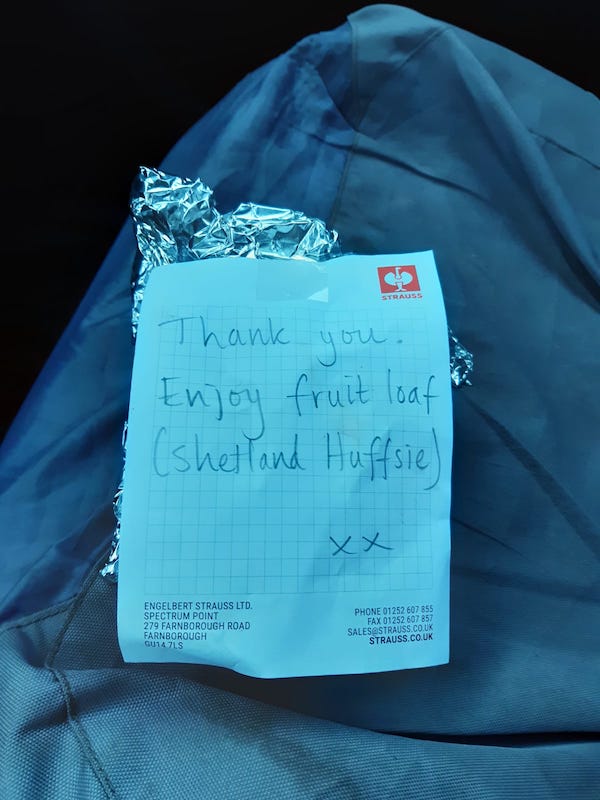 STRAUSS
Thank you.
Enjoy fruit loaf
(Shetland Huffsie)
xx
ENGELBERT STRAUSS LTD.
SPECTRUM POINT
279 FARNBOROUGH ROAD
FARNBOROUGH
GU14 7LS
PHONE 01252 607 855
FAX 01252 607 857
SALES@STRAUSS.CO.UK
STRAUSS.CO.UK